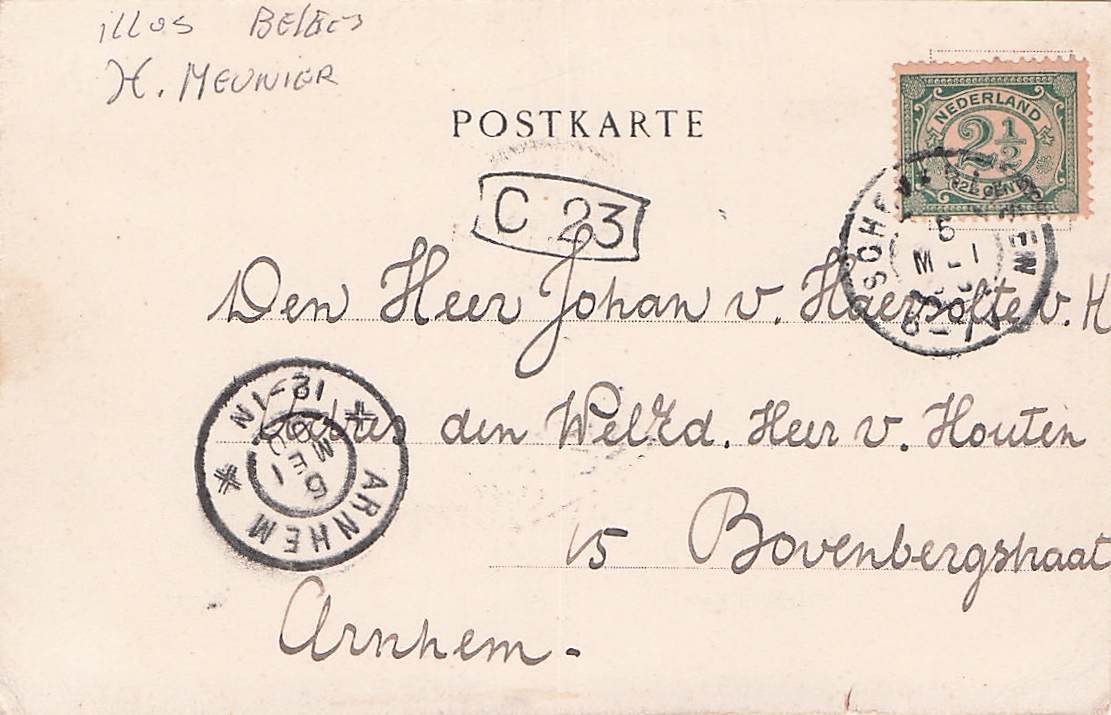 illos BELGES
H. MEUNIER
POSTKARTE
NEDERLAND
2 1/2
CENT
C 23
Den Heer Johan v. Haersolte v. H
adres den WelEd. Heer v. Houten
15 Bovenbergstraat
Arnhem.
ARNHEM
5 MEI
12-1N
5 MEI